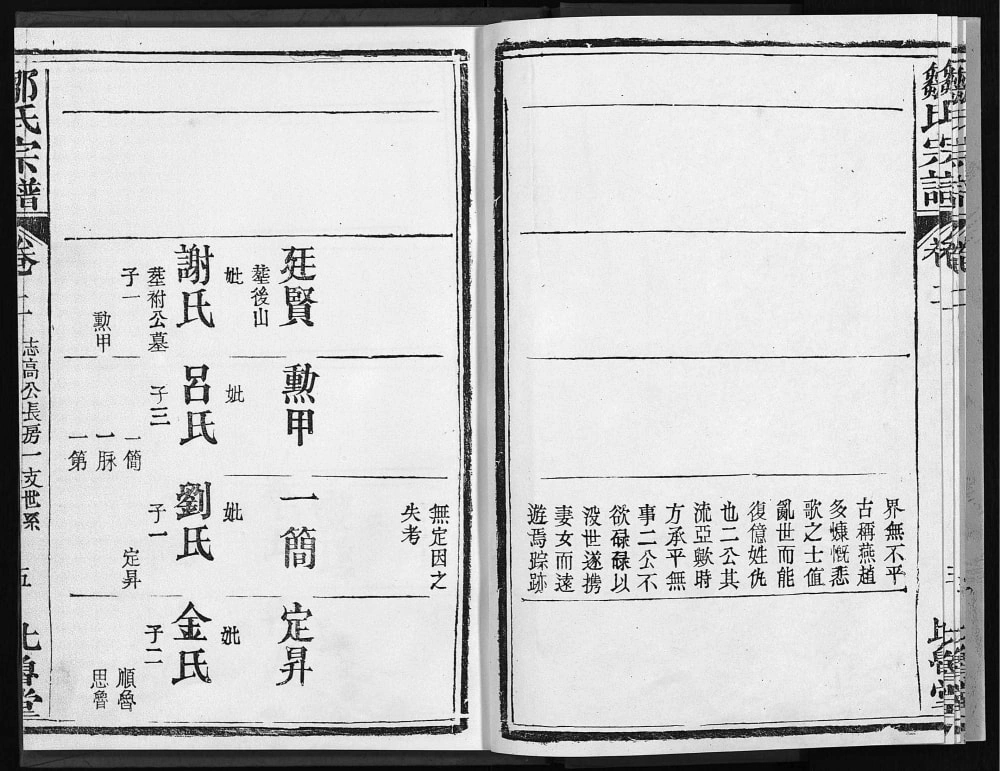 界無不平
古稱燕趙
多慷慨悲
歌之士值
亂世而能
復億姓仇
也二公其
流亞歟時
方承平無
事二公不
欲碌碌以
沒世遂携
妻女而遠
遊焉踪跡
無定因之
失考
廷賢
塟後山
妣
謝氏
塟祔公墓
子一
勲甲
勲甲
妣
呂氏
子三
一簡
一脉
一第
一簡
妣
劉氏
子一
定昇
定昇
妣
金氏
子二
順魯
思魯
鄒氏宗譜
卷二
志高公長房一支世系
五